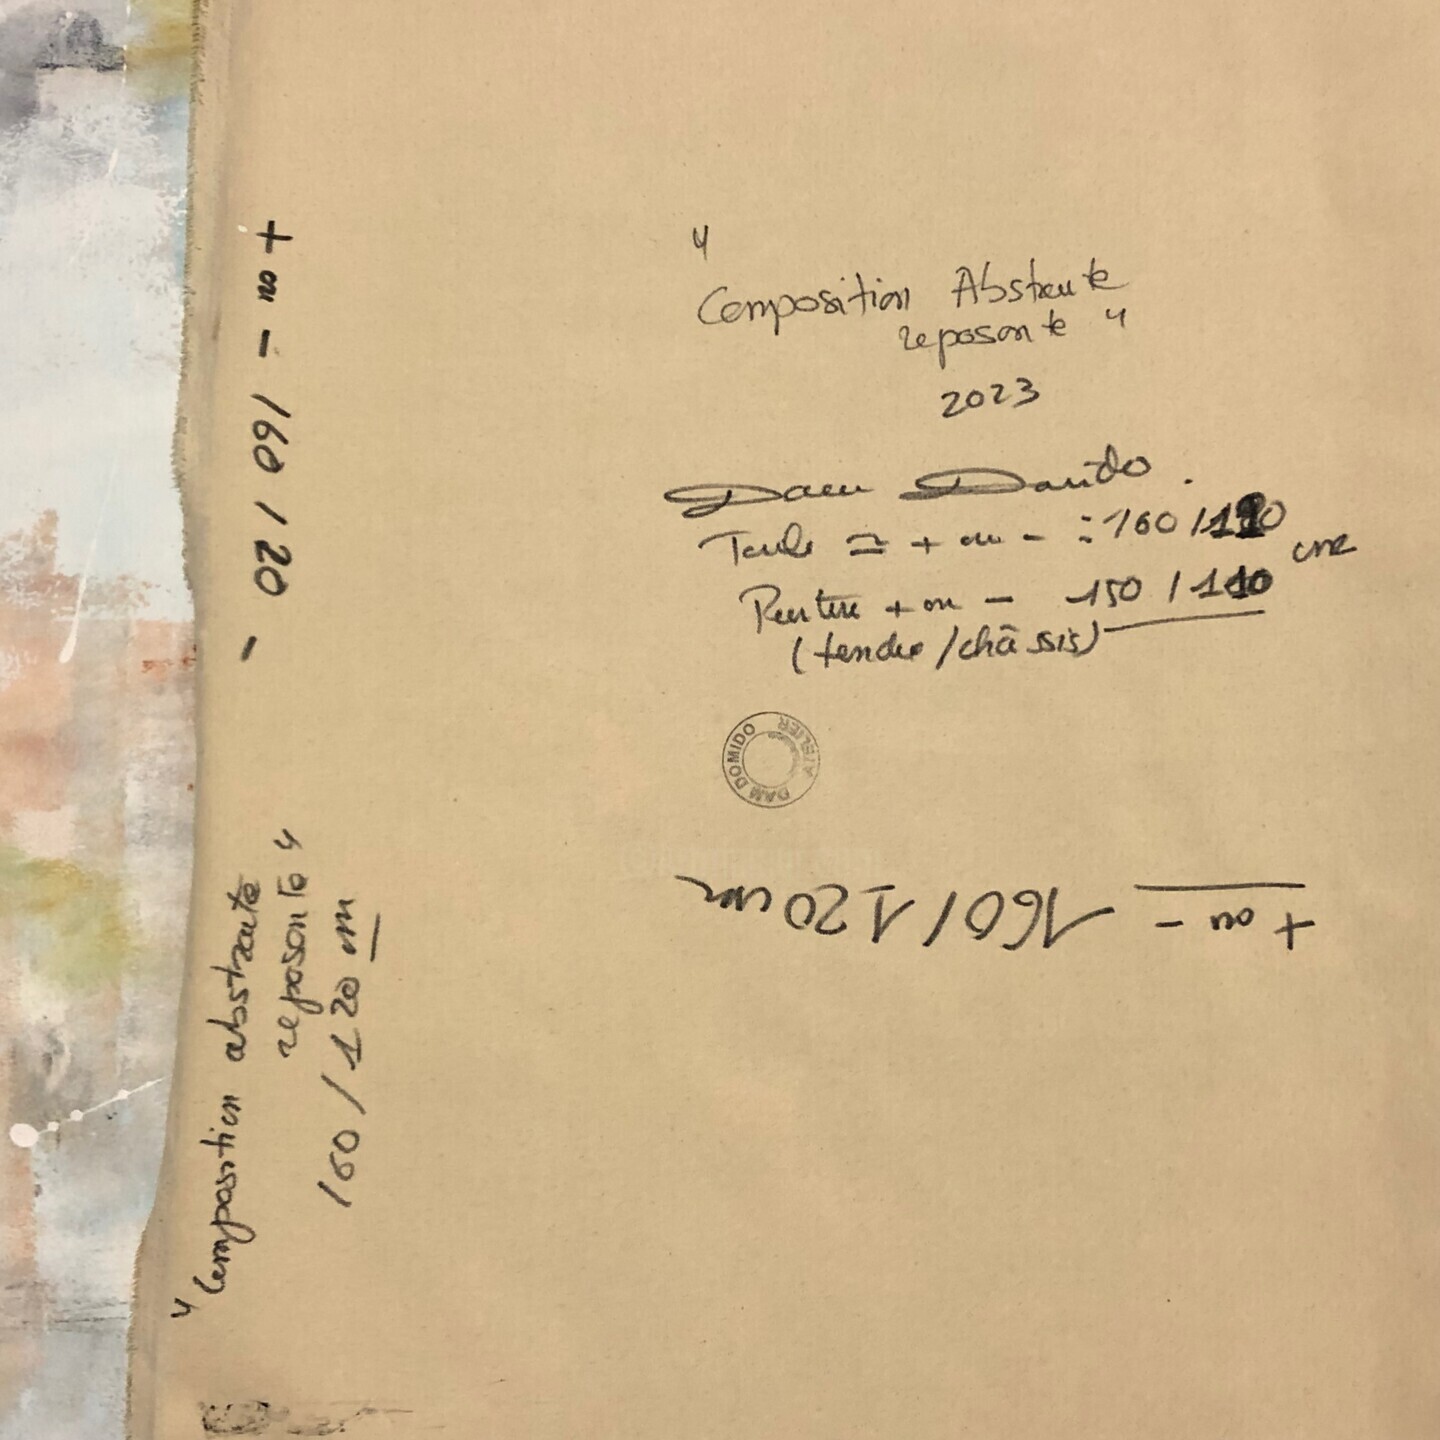 "
Composition Abstraite
reposante "
2023
Dam Domido .
Toile ≃ + ou - : 160 / 120 cm
Peinture + ou - 150 / 110
(tendue / châssis)
DAM DOMIDO ATELIER
+ ou - 160 / 120 cm
+ ou - 160 / 120 -
" Composition abstraite
reposante "
160 / 120 cm